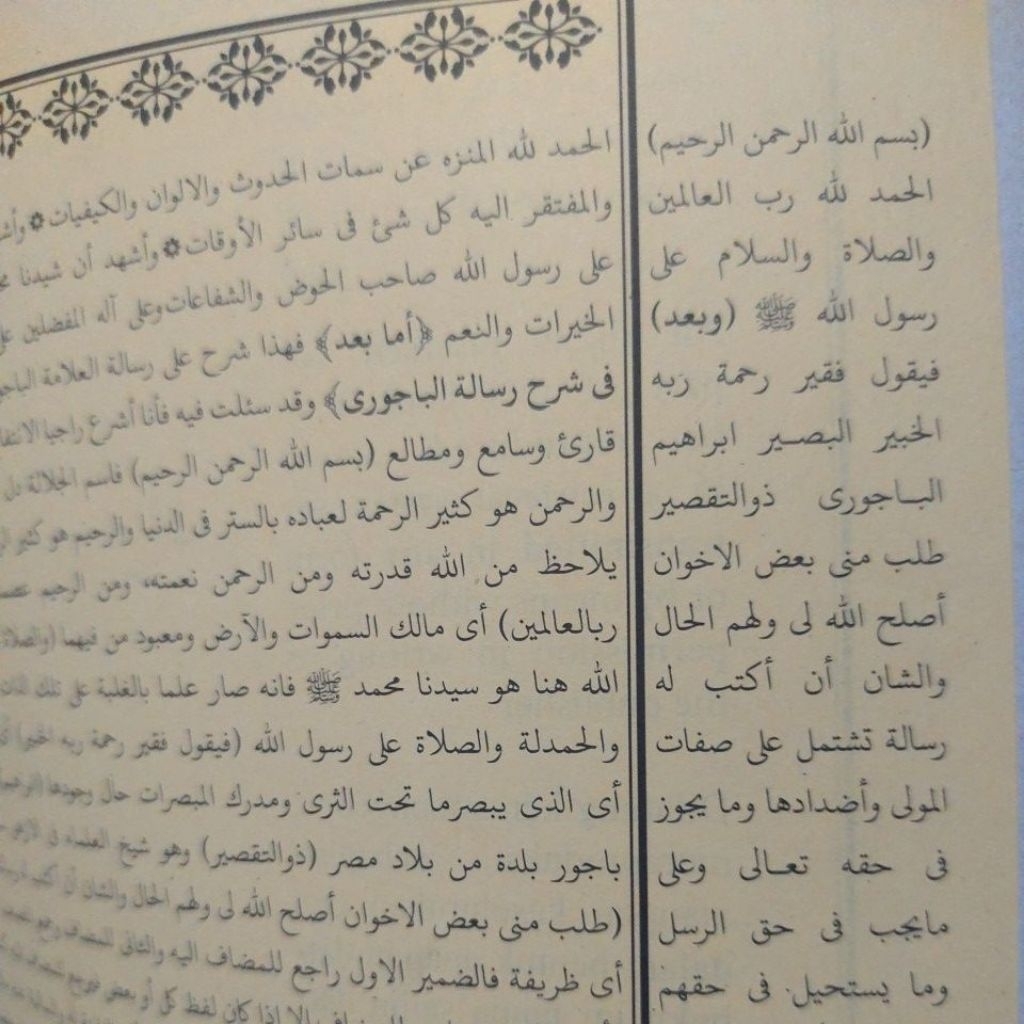 (بسم الله الرحمن الرحيم)
الحمد لله رب العالمين
والصلاة والسلام على
رسول الله ﷺ (وبعد)
فيقول فقير رحمة ربه
الخبير البصير ابراهيم
الباجورى ذوالتقصير
طلب منى بعض الاخوان
أصلح الله لى ولهم الحال
والشان أن أكتب له
رسالة تشتمل على صفات
المولى وأضدادها وما يجوز
فى حقه تعالى وعلى
مايجب فى حق الرسل
وما يستحيل فى حقهم
الحمد لله المنزه عن سمات الحدوث والالوان والكيفيات * وأشهد
والمفتقر اليه كل شئ فى سائر الأوقات * وأشهد أن شيدنا
على رسول الله صاحب الحوض والشفاعات وعلى آله المفضلين
الخيرات والنعم ﴿أما بعد﴾ فهذا شرح على رسالة العلامة
فى شرح رسالة الباجورى﴾ وقد سئلت فيه فأنا أشرع راجيا
قارئ وسامع ومطالع (بسم الله الرحمن الرحيم) فاسم الجلالة
والرحمن هو كثير الرحمة لعباده بالستر فى الدنيا والرحيم هو كثير
يلاحظ من الله قدرته ومن الرحمن نعمته، ومن الرحيم
ربالعالمين) أى مالك السموات والآرض ومعبود من فيهما
الله هنا هو سيدنا محمد ﷺ فانه صار علما بالغلبة على تلك
والحمدلة والصلاة على رسول الله (فيقول فقير رحمة ربه
أى الذى يبصرما تحت الثرى ومدرك المبصرات حال وجودها
باجور بلدة من بلاد مصر (ذوالتقصير) وهو شيخ العلماء
(طلب منى بعض الاخوان أصلح الله لى ولهم الحال والشان أن
أى ظريفة فالضمير الاول راجع للمضاف اليه والثانى للمضاف